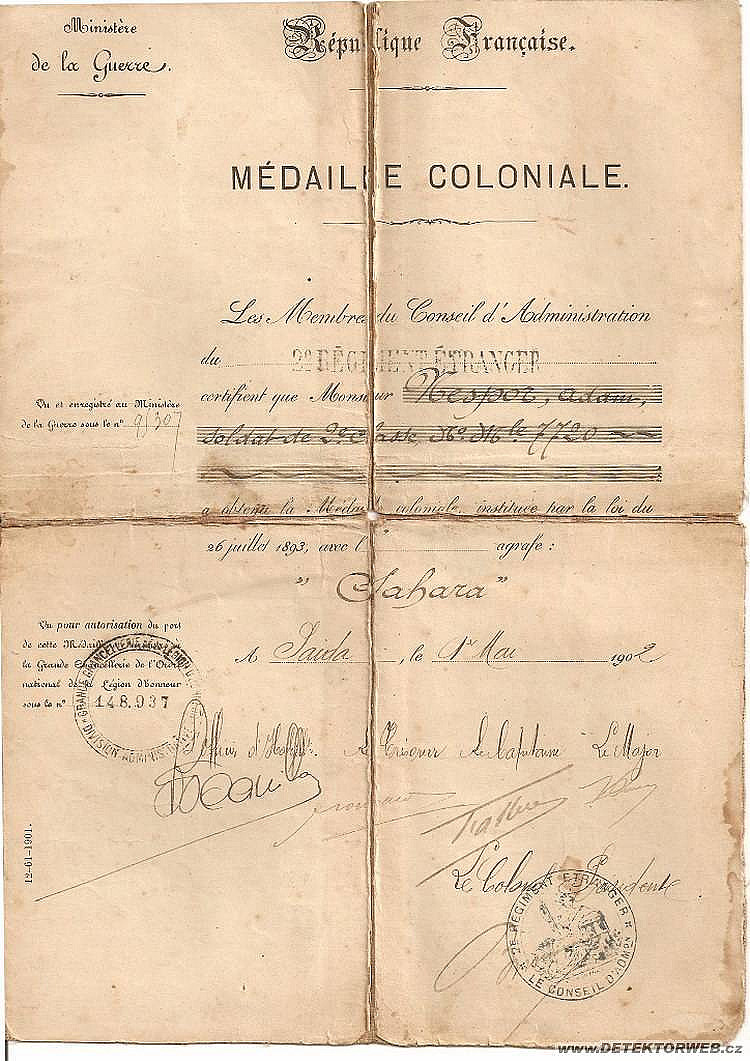 Ministère
de la Guerre.
République Française.
MÉDAILLE COLONIALE.
Les Membres du Conseil d'Administration
du 2e RÉGIMENT ÉTRANGER
certifient que Monsieur Nespor, Adam,
soldat de 2e classe No Mle 7720
Vu et enregistré au Ministère
de la Guerre sous le no
a obtenu la Médaille coloniale, instituée par la loi du
26 juillet 1893, avec l' agrafe :
"Sahara"
Vu pour autorisation du port
de cette Médaille
la Grande Chancellerie de l'Ordre
national de la Légion d'honneur
sous le no 148.937
A Saida, le 1er Mai 1902
L'Officier d'Habillt. Le Trésorier Le Capitaine Le Major
Le Colonel Président
2E REGIMENT ETRANGER
LE CONSEIL D'ADMON
12-61-1901.
www.DETEKTORWEB.cz